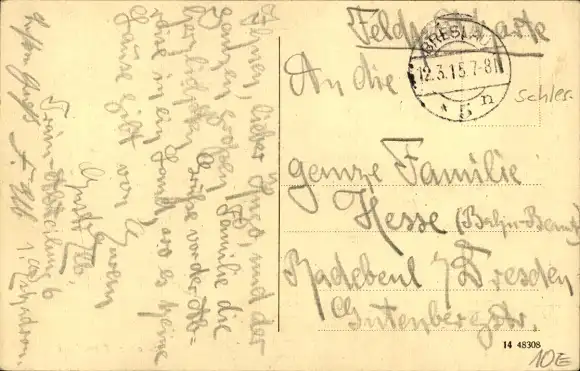 Ihnen, lieber Hugo, und der
ganzen großen Familie die
herzlichsten Grüße vor der Ab-
reise in ein Land, wo es keine
Gäuse gibt von Ihrem
Train-Abteilung 6
Feldpostkarte
BRESLAU
12.3.15.7-8N
* 5 n
An die
schles.
ganze Familie
Hesse (Bahn-Beamt.)
Radebeul b/Dresden
Gutenbergstr.
14 48308
10E